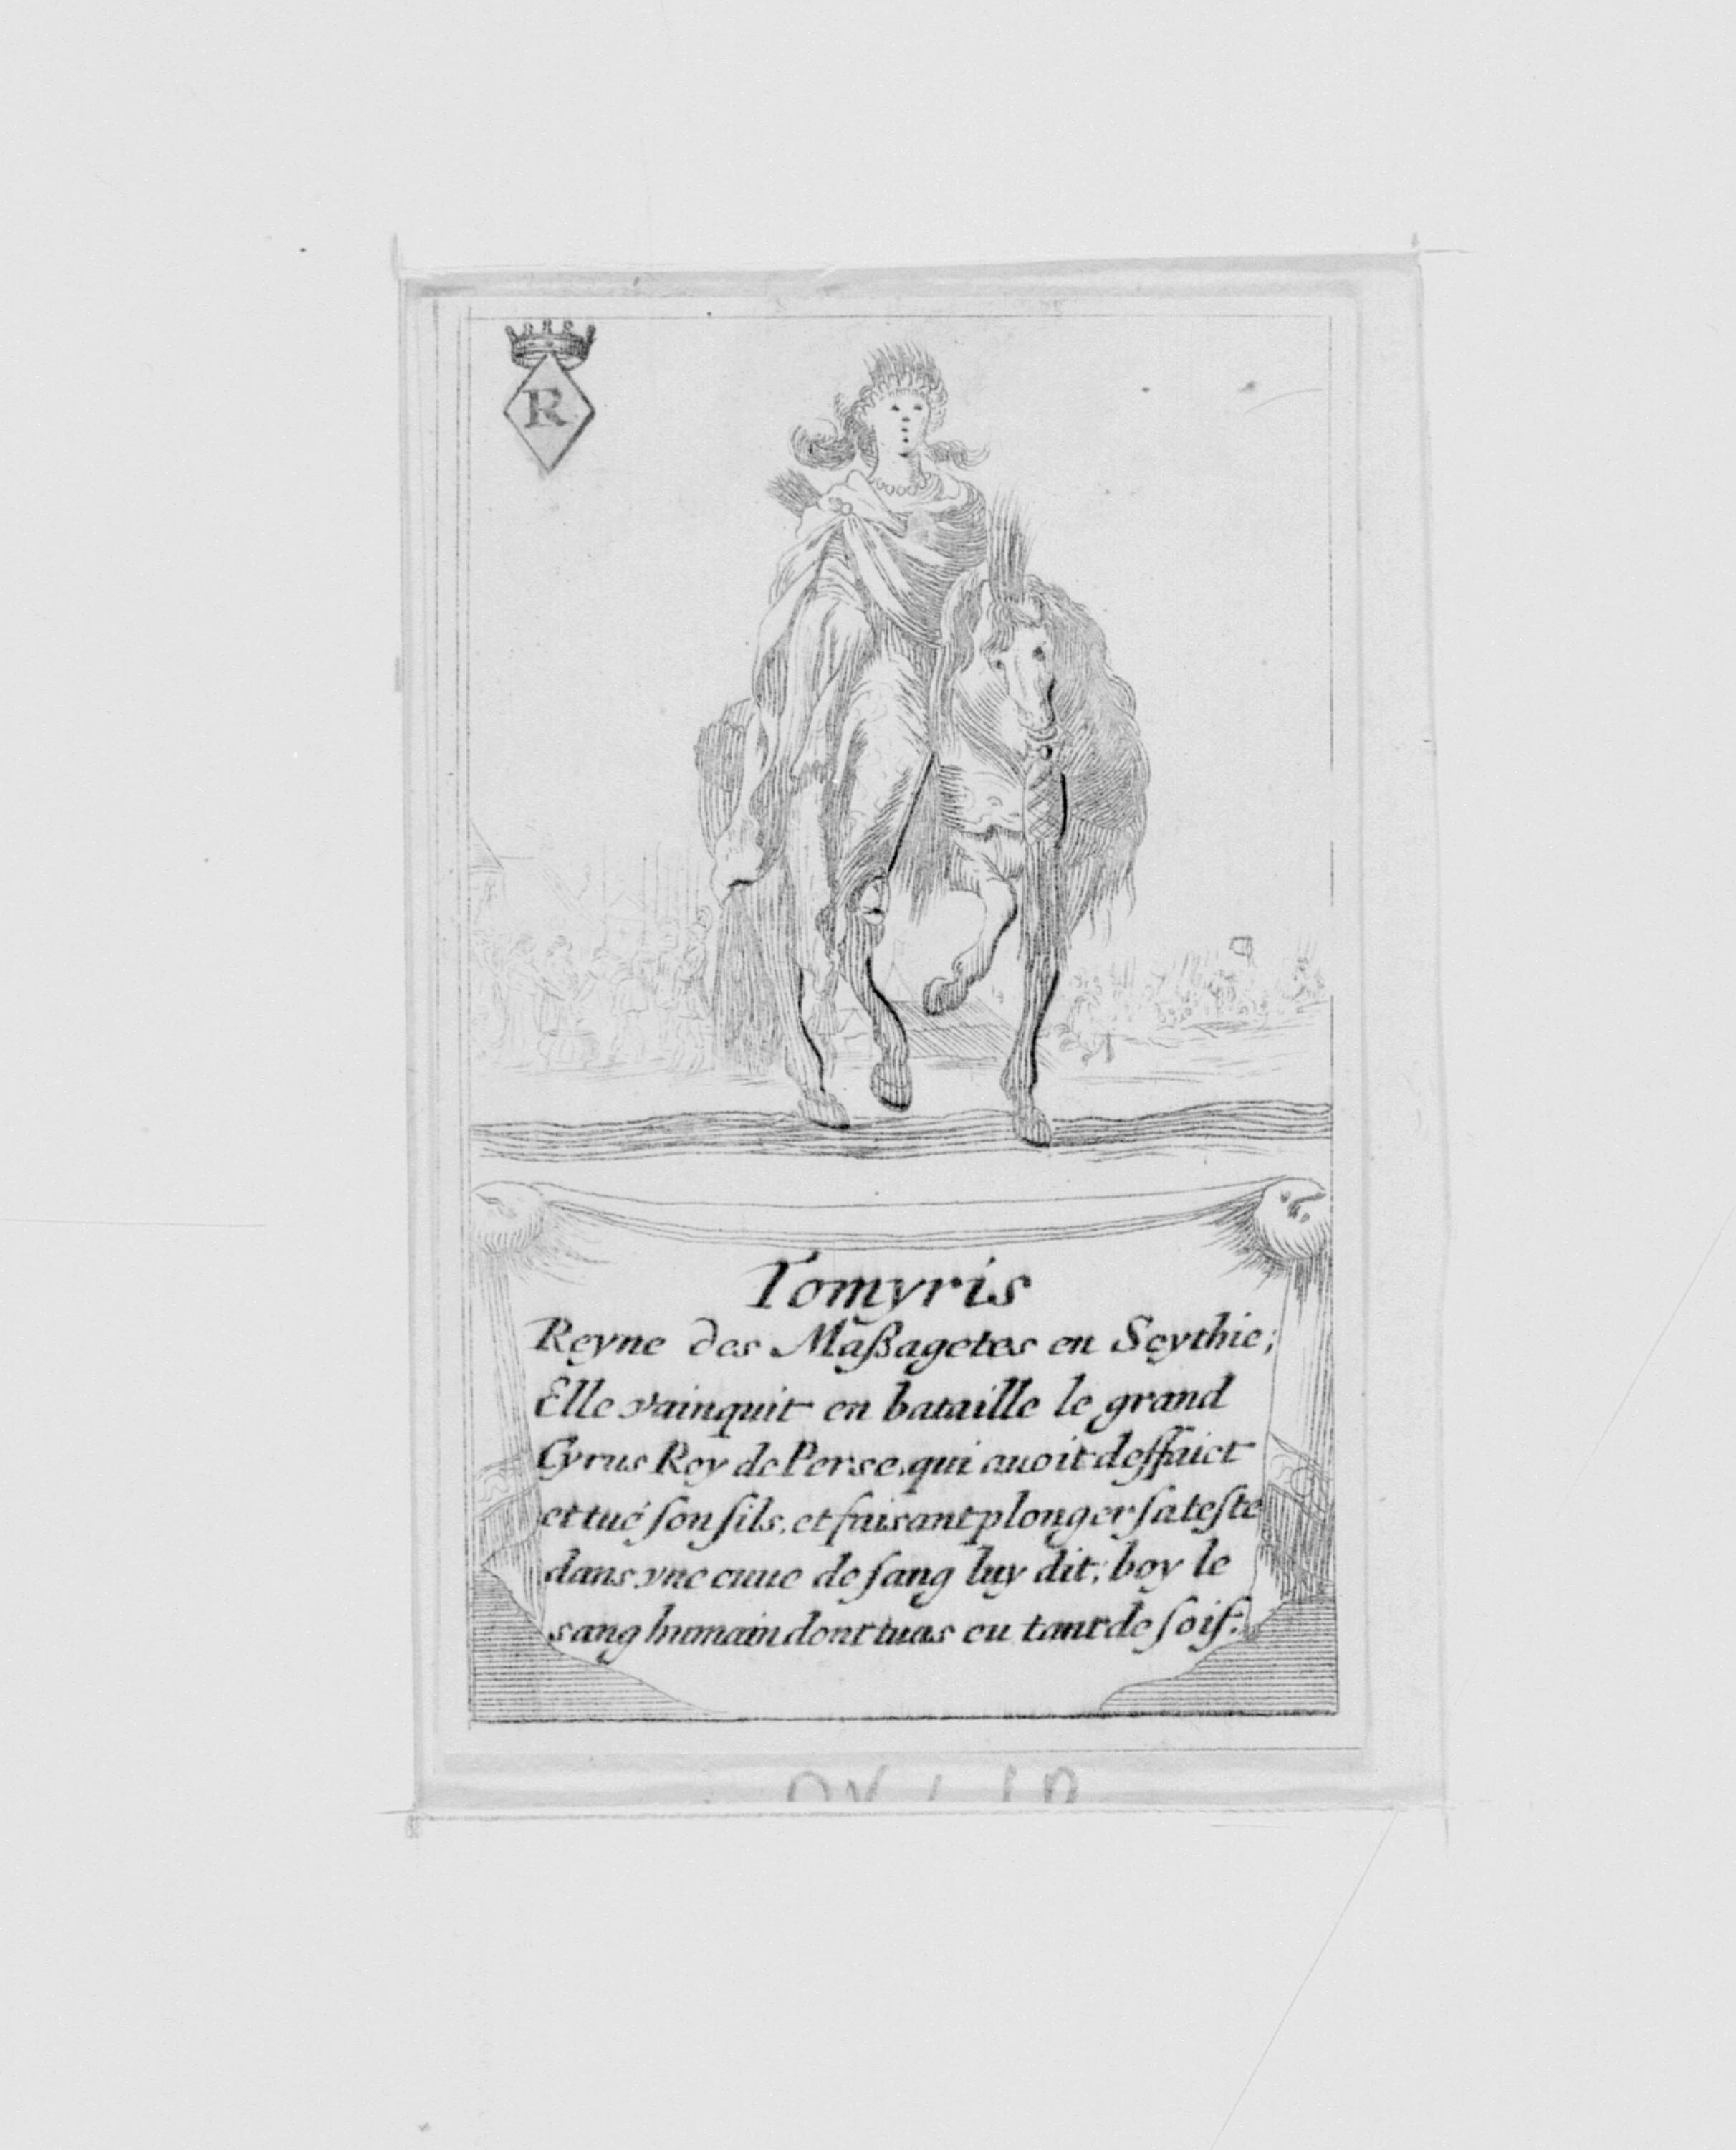 R
Tomyris
Reyne des Maßagetes en Scythie;
Elle vainquit en bataille le grand
Cyrus Roy de Perse, qui auoit deffaict
et tué ſon fils, et faisant plonger ſa teſte
dans vne cuue de ſang luy dit; boy le
sang humain dont tu as eu tant de ſoif.